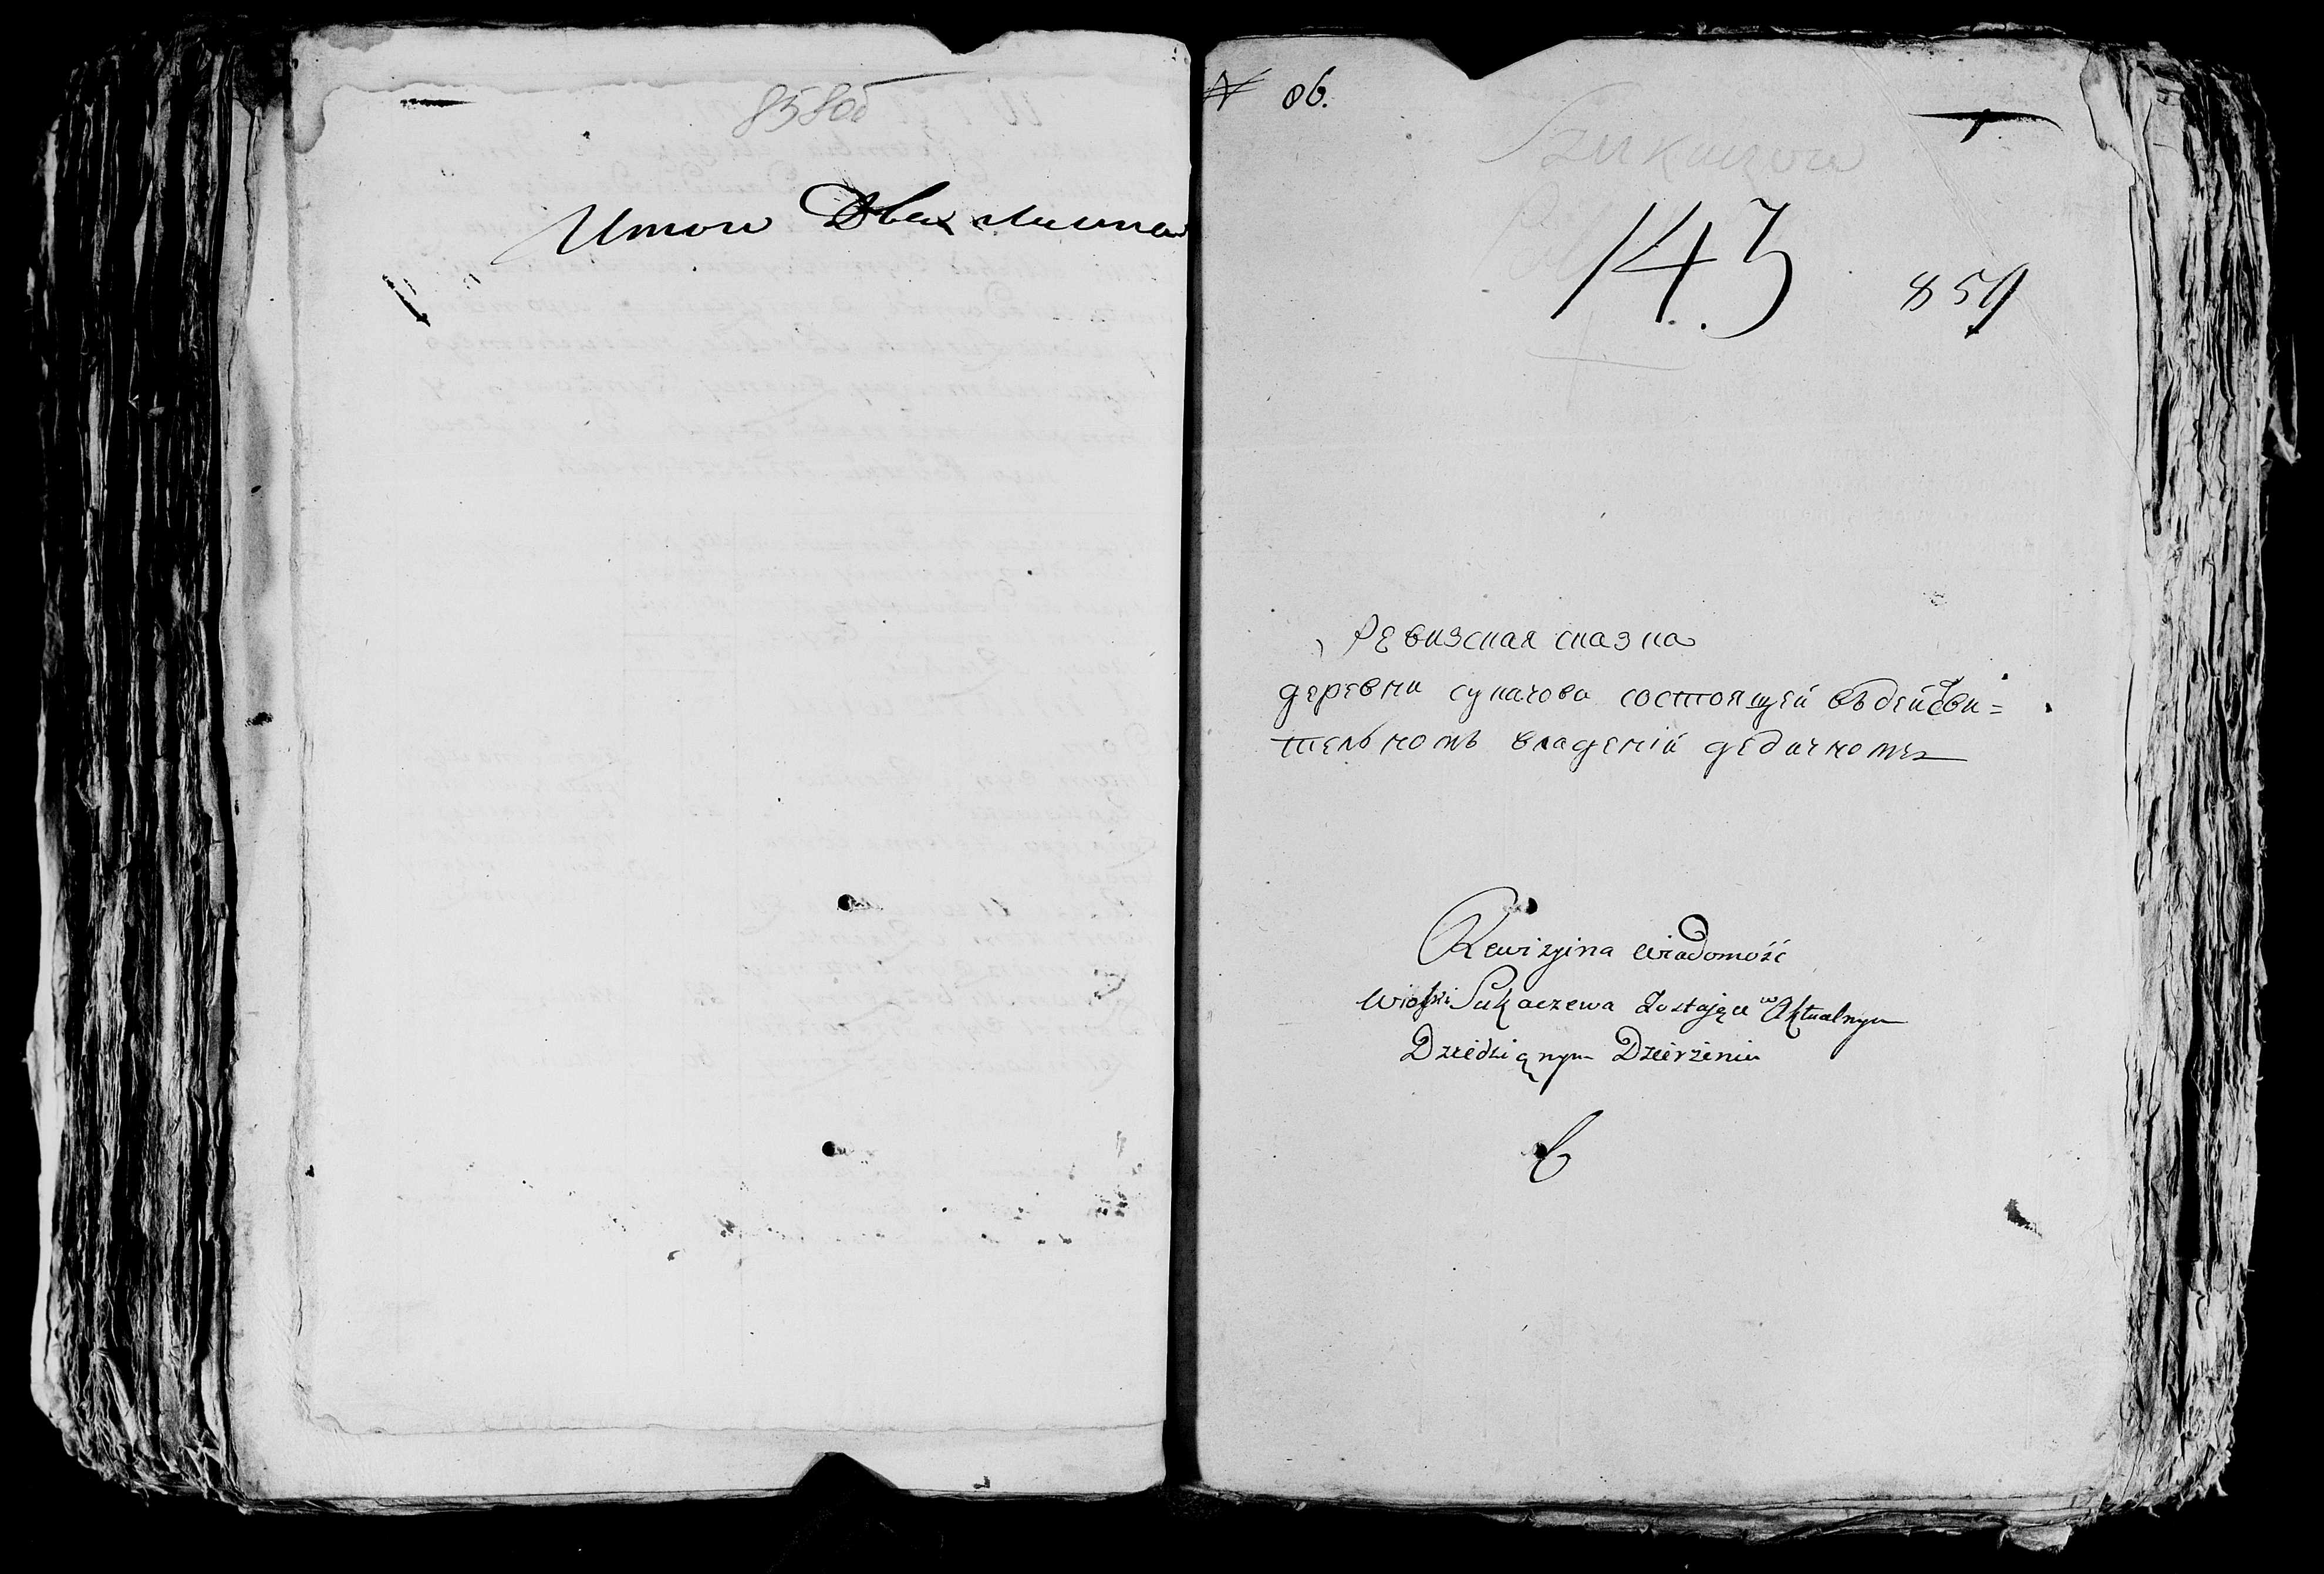 858об
Итого Два листа
№ 86.
Szukaczew
143
859
Ревизская сказка
деревни сукачова состоящей въ действи=
тельномъ владении дедичномъ
Rewizyina wiadomość
Wioski Sukaczewa Zostające w Aktualnym
Dziedzicznym Dzierżeniu